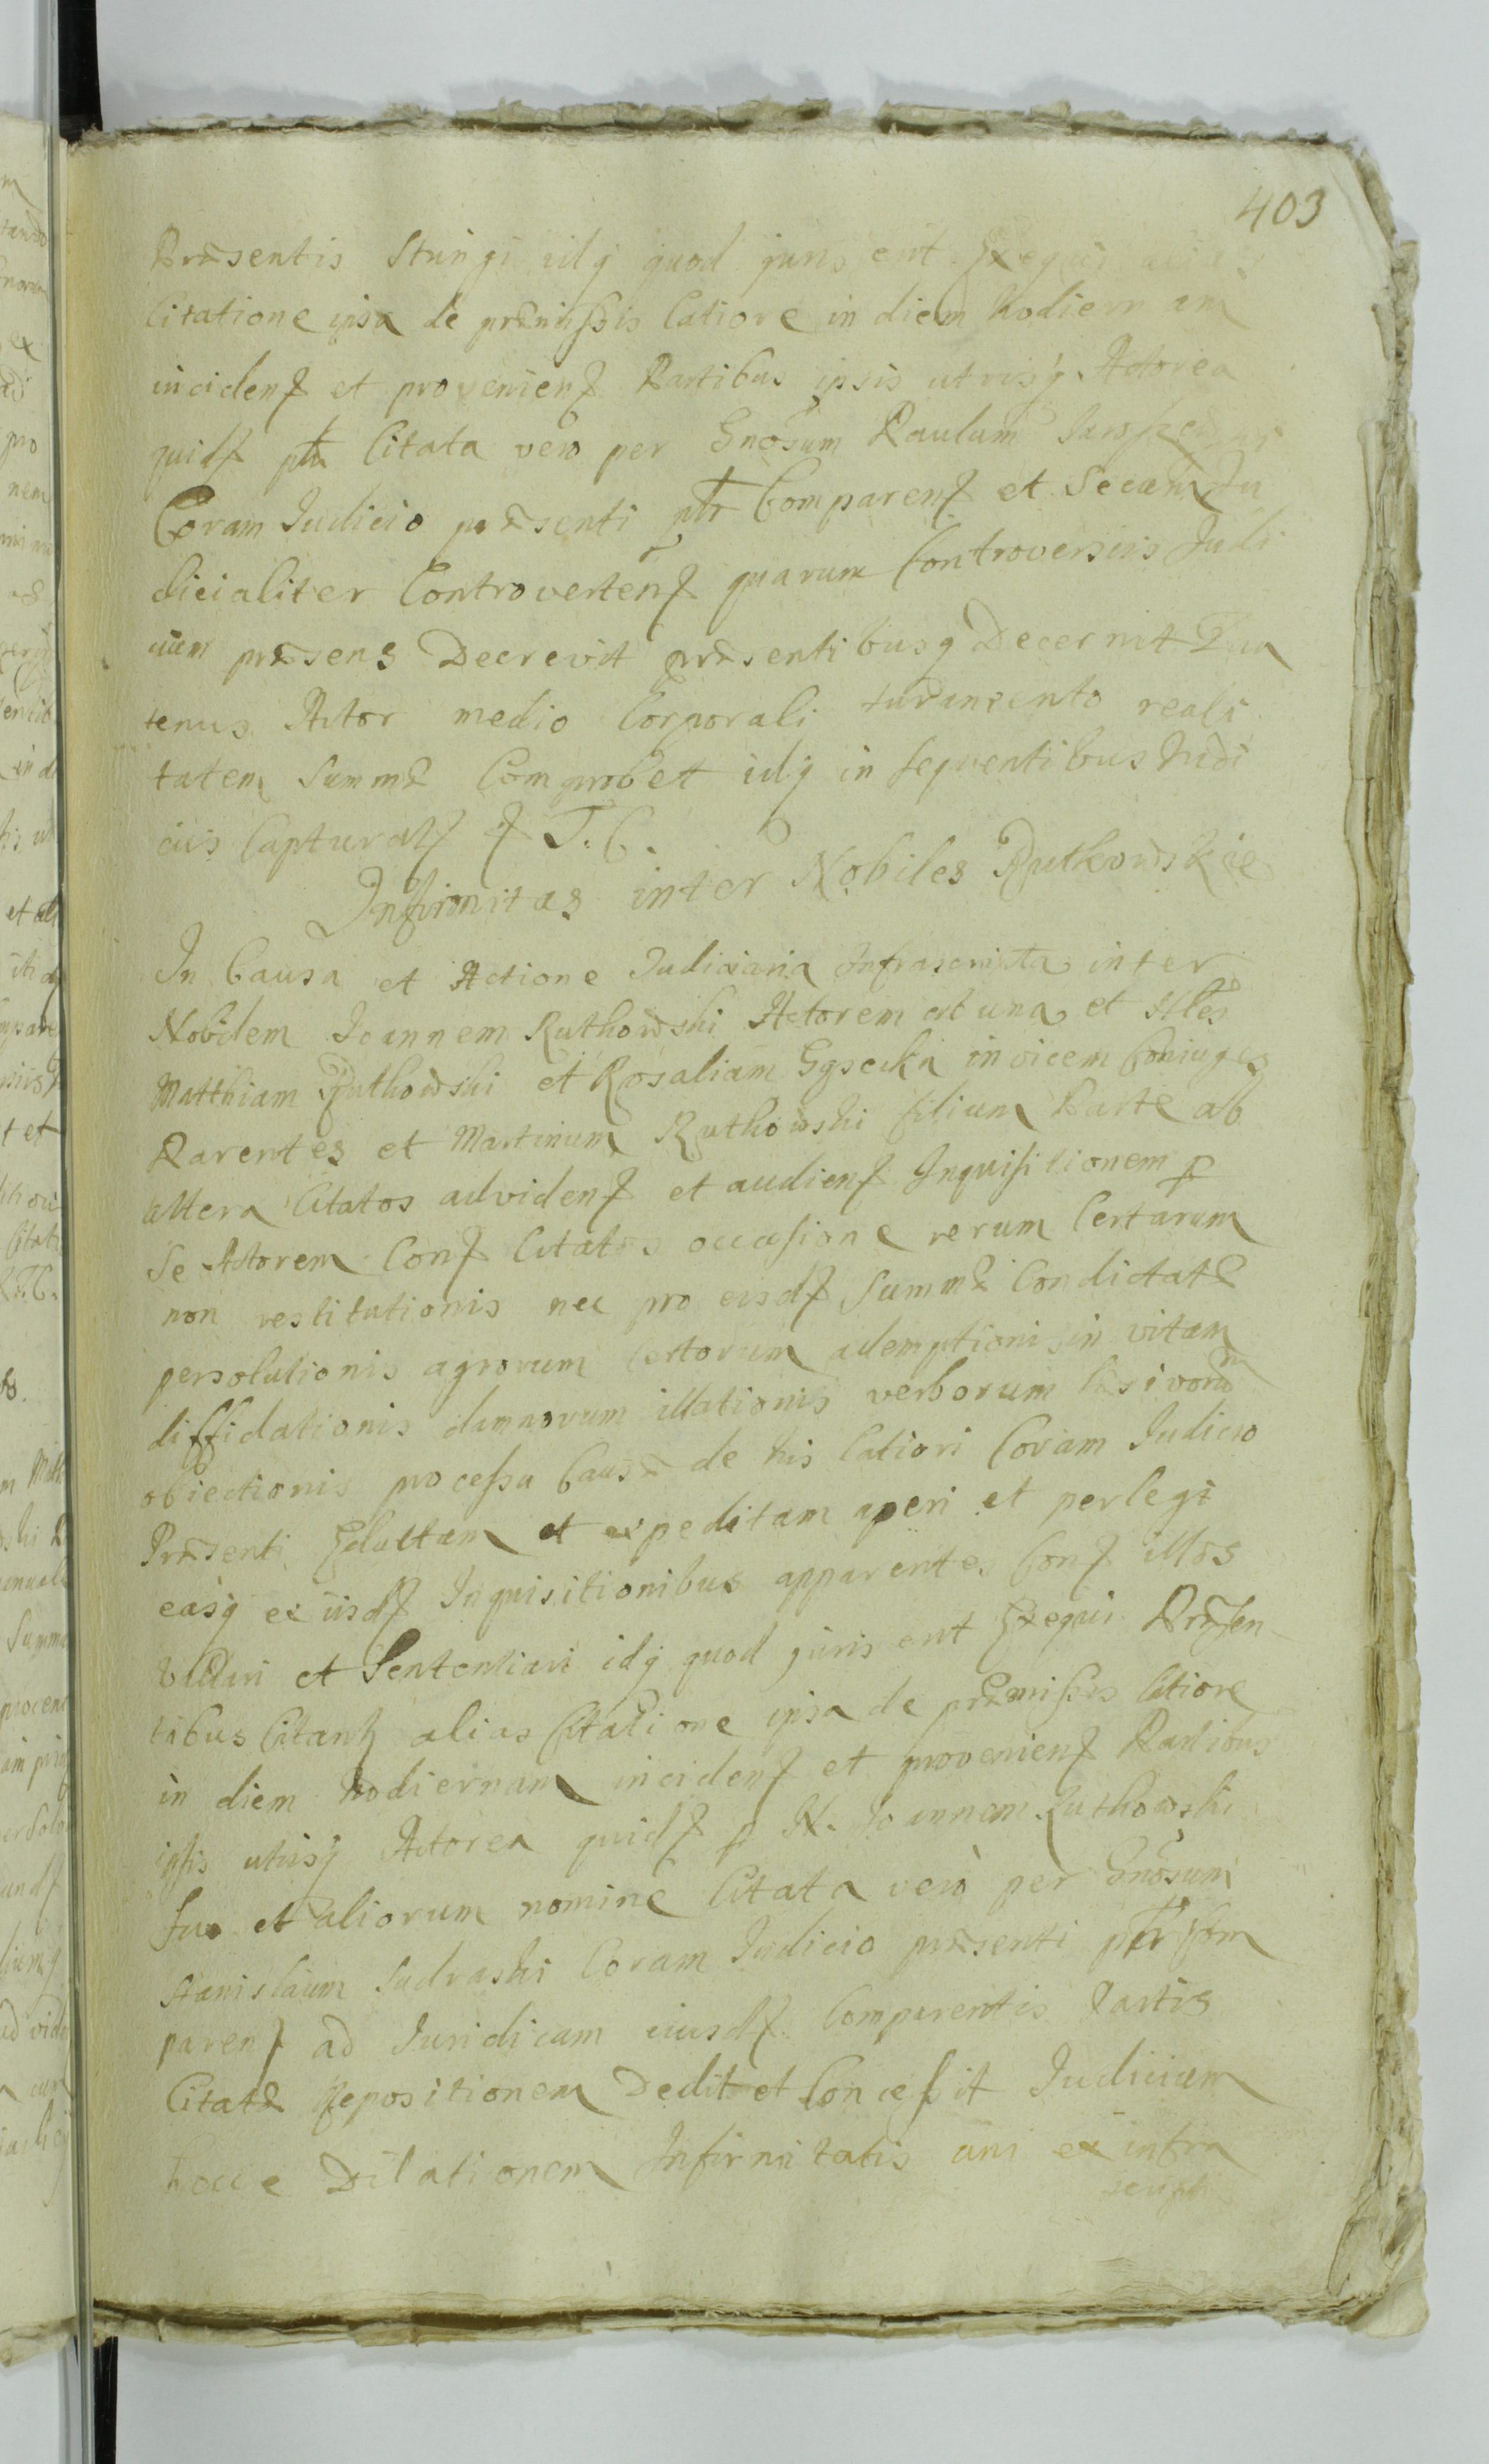 403
Præsentis Stringi idq quod juris erit Exequi alias
Citatione ipsa de præmissis latiore in diem hodiernam
incidenꝭ et provenienꝭ Partibus ipsis utrisq Actorea
quidꝭ ptr Citata vero per Gnosum Paulum
Coram Judicio præsenti ptr Comparenꝭ et Secum Ju
dicialiter Controvertenꝭ quarum Controversiis Judi
cium præsens Decrevit præsentibusq Decernit Qua
tenus Actor medio Corporali Juramento reali
tatem Summæ Comprobet idq in sequentibus Judi
ciis Capturalꝭ ꝭ T. C.
Infirmitas inter Nobiles Rutkowskie
In Causa et Actione Judiciaria Infrascripta inter
Nobilem Joannem Ruthowski Actorem ab una et Nles
Matthiam Ruthowski et Rosaliam invicem Coniuges
Parentes et Martinum Ruthowski filium Parte ab
altera Citatos ad videnꝭ et audienꝭ Inquisitionem p
Se Actorem Conꝭ Citatos occasione rerum Certarum
non restitutionis nec pro eisdꝭ Summæ Condictatæ
persolutionis agrorum Certorum ademptionis in vitam
diffidationis damnorum illationis verborum læsivorum
obiectionis processu Causæ de his latiori Coram Judicio
Præsenti Eductam et expeditam aperi et perlegi
easq ex iisdꝭ Inquisitionibus apparentes Conꝭ illos
vallari et Sententiari idq quod juris erit Exequi Præsen
tibus Citanꝭ alias Citatione ipsa de præmissis latiore
in diem hodiernam incidenꝭ et provenienꝭ Partibus
ipsis utrisq Actorea quidꝭ p N. Joannem Ruthowski
suo et aliorum nomine Citata verò per Gnosum
Stanislaum Sudraski Coram Judicio præsenti ptr Com
parenꝭ ad Juridicam eiusdꝭ Comparentis Partis
Citatæ Repositionem Dedit et Concessit Judicium
hocce Dilationem Infirmitatis uni ex infra
scripti